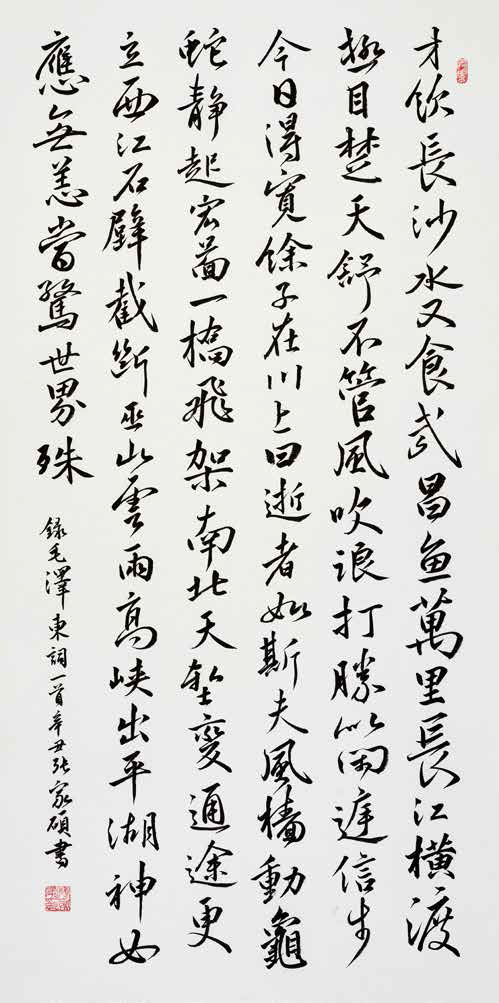 才飲長沙水又食武昌魚萬里長江橫渡
極目楚天舒不管風吹浪打勝似閑庭信步
今日得寬餘子在川上曰逝者如斯夫風檣動龜
蛇靜起宏圖一橋飛架南北天塹變通途更
立西江石壁截斷巫山雲雨高峽出平湖神女
應無恙當驚世界殊
錄毛澤東詞一首辛丑張家碩書